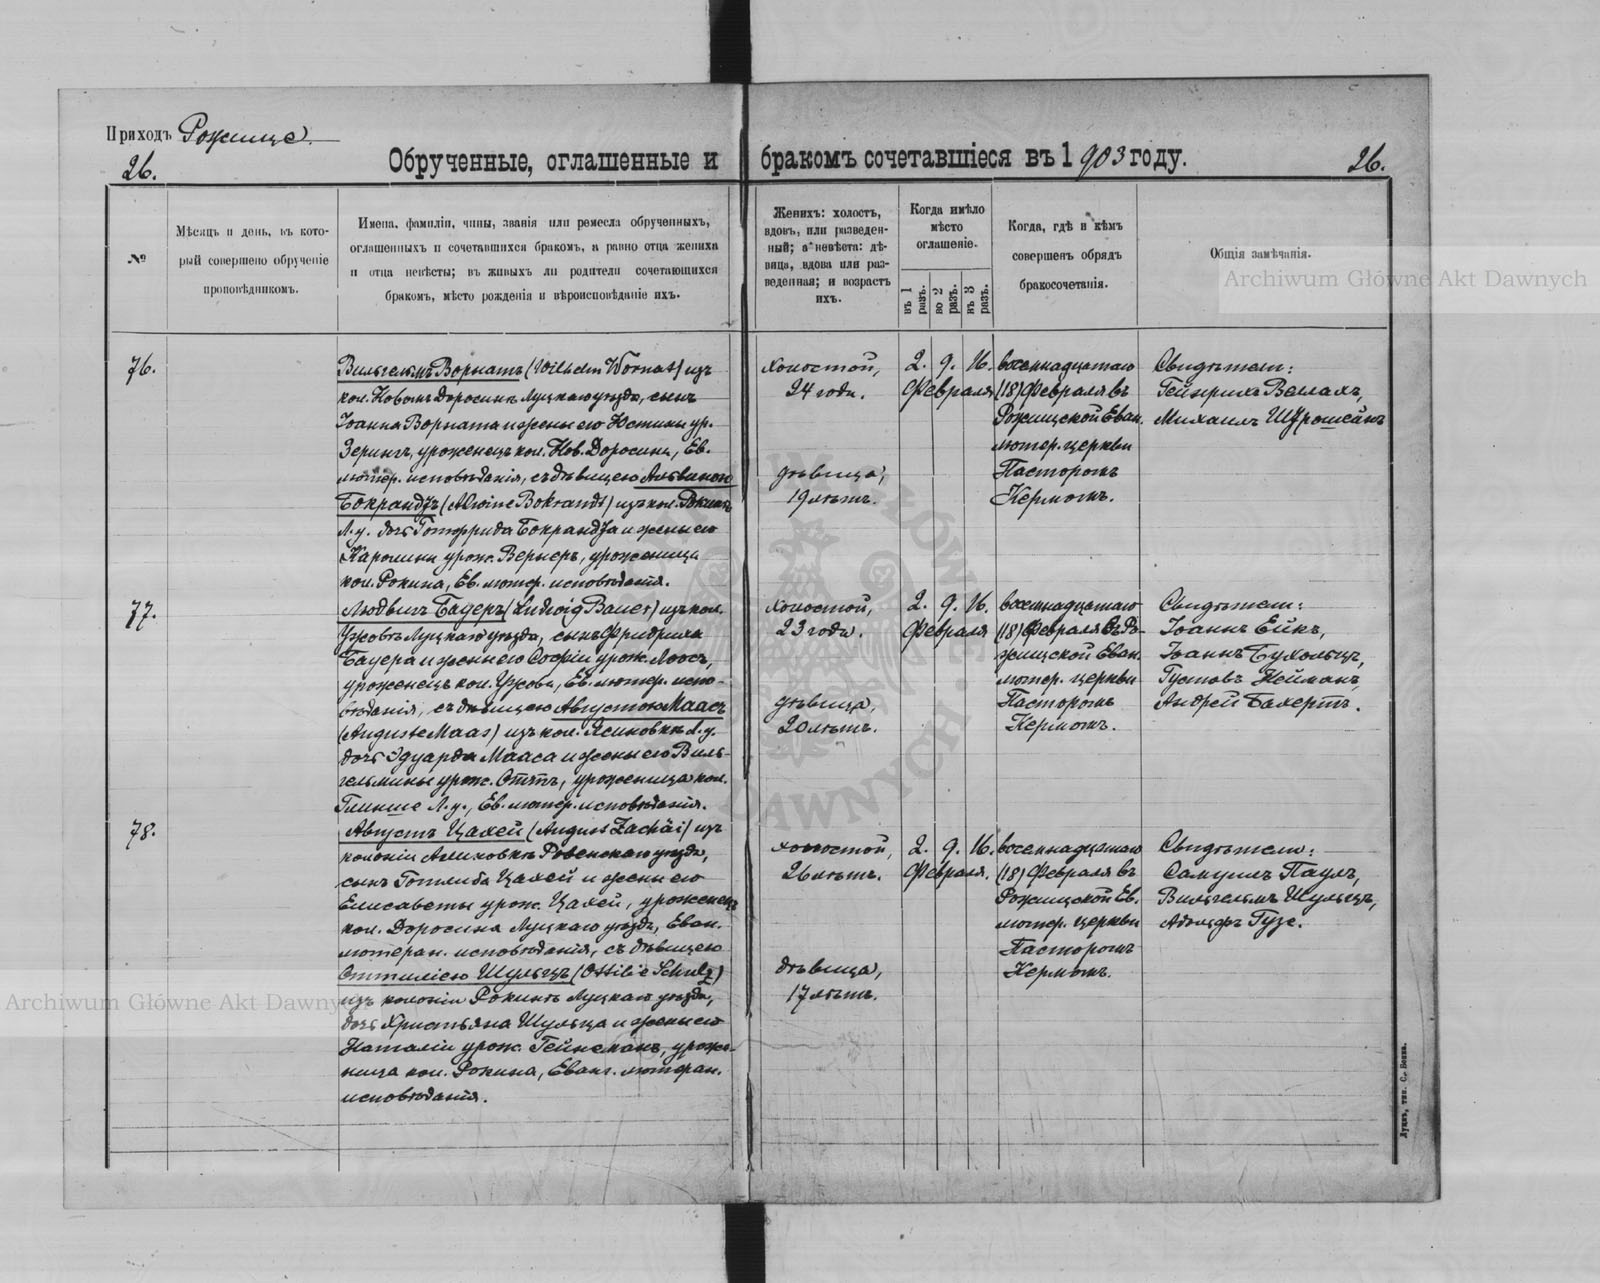 Приходъ Рожище.
26.
Обрученные, оглашенные и бракомъ сочетавшіеся въ 1903 году.
26.
№
Мѣсяцъ и день, въ кото-
рый совершено обрученіе
проповѣдникомъ.
Имена, фамиліи, чины, званія или ремесла обрученныхъ,
оглашенныхъ и сочетавшихся бракомъ, а равно отца жениха
и отца невѣсты; въ живыхъ ли родители сочетающихся
бракомъ, мѣсто рожденія и вѣроисповѣданіе ихъ.
Женихъ: холостъ,
вдовъ, или разведен-
ный; а невѣста: дѣ-
вица, вдова или раз-
веденная; и возрастъ
ихъ.
Когда имѣло
мѣсто
оглашеніе.
въ 1
разъ.
во 2
разъ.
въ 3
разъ.
Когда, гдѣ и кѣмъ
совершенъ обрядъ
бракосочетанія.
Общія замѣчанія.
Archiwum Główne Akt Dawnych
76.
Вильгельмъ Ворнатъ (Wilhelm Wornat) изъ
кол. Новыхъ Доросинъ Луцкаго уѣзда, сынъ
Іоанна Ворната и жены его Юстины ур.
Зерингъ, уроженецъ кол. Нов. Доросина, Ев.
лютер. исповѣданія, съ дѣвицею Альвиною
Бокрандтъ (Alwine Bokrandt) изъ кол. Рокинъ
Л. у. дочь Готфрида Бокрандта и жены его
Каролины урож. Вернеръ, уроженица
кол. Рокина, Ев. лютер. исповѣданія.
холостой,
24 года.
дѣвица,
19 лѣтъ.
2. 9. 16.
Февраля
восемнадцатаго
(18) Февраля въ
Рожищской Еван.
лютер. церкви
Пасторомъ
Кермомъ.
Свидѣтели:
Гейнрихъ Веллахъ,
Михаилъ
77.
Людвигъ Бауеръ (Ludwig Bauer) изъ кол.
Ужовъ Луцкаго уѣзда, сынъ Фридриха
Бауера и жены его Софіи урож. Лоосъ,
уроженецъ кол. Ужова, Ев. лютер. испо-
вѣданія, съ дѣвицею Августою Маасъ
(Auguste Maas) изъ кол. Ясиновки Л. у.
дочь Эдуарда Мааса и жены его Виль-
гельмины урож. Оттъ, уроженица кол.
Глинше Л. у., Ев. лютер. исповѣданія.
холостой,
23 года.
дѣвица,
20 лѣтъ.
2. 9. 16.
Февраля
восемнадцатаго
(18) Февраля въ Ро-
жищской Еван.
лютер. церкви
Пасторомъ
Кермомъ.
Свидѣтели:
Іоаннъ Ейкъ,
Іоаннъ Бухольцъ,
Густавъ Нейманъ,
Андрей Бахертъ.
78.
Августъ Цахей (August Zachäi) изъ
колоніи Амиховкъ Ровенскаго уѣзда,
сынъ Готлиба Цахей и жены его
Елисаветы урож. Цахей, уроженецъ
кол. Доросина Луцкаго уѣзда, Еван.
лютеран. исповѣданія, съ дѣвицею
Оттиліею Шульцъ (Ottilie Schulz)
изъ колоніи Рокинъ Луцкаго уѣзда,
дочь Христьяна Шульца и жены его
Наталіи урож. Гейнеманъ, уроже-
ница кол. Рокина, Еванг. лютеран.
исповѣданія.
холостой,
26 лѣтъ.
дѣвица,
17 лѣтъ.
2. 9. 16.
Февраля.
восемнадцатаго
(18) Февраля въ
Рожищской Ев.
лютер. церкви
Пасторомъ
Кермомъ.
Свидѣтели:
Самуилъ Паулъ,
Вильгельмъ Шульцъ,
Адольфъ Гузе.
Archiwum Główne Akt Dawnych
Луцкъ, тип. С. Бокса.